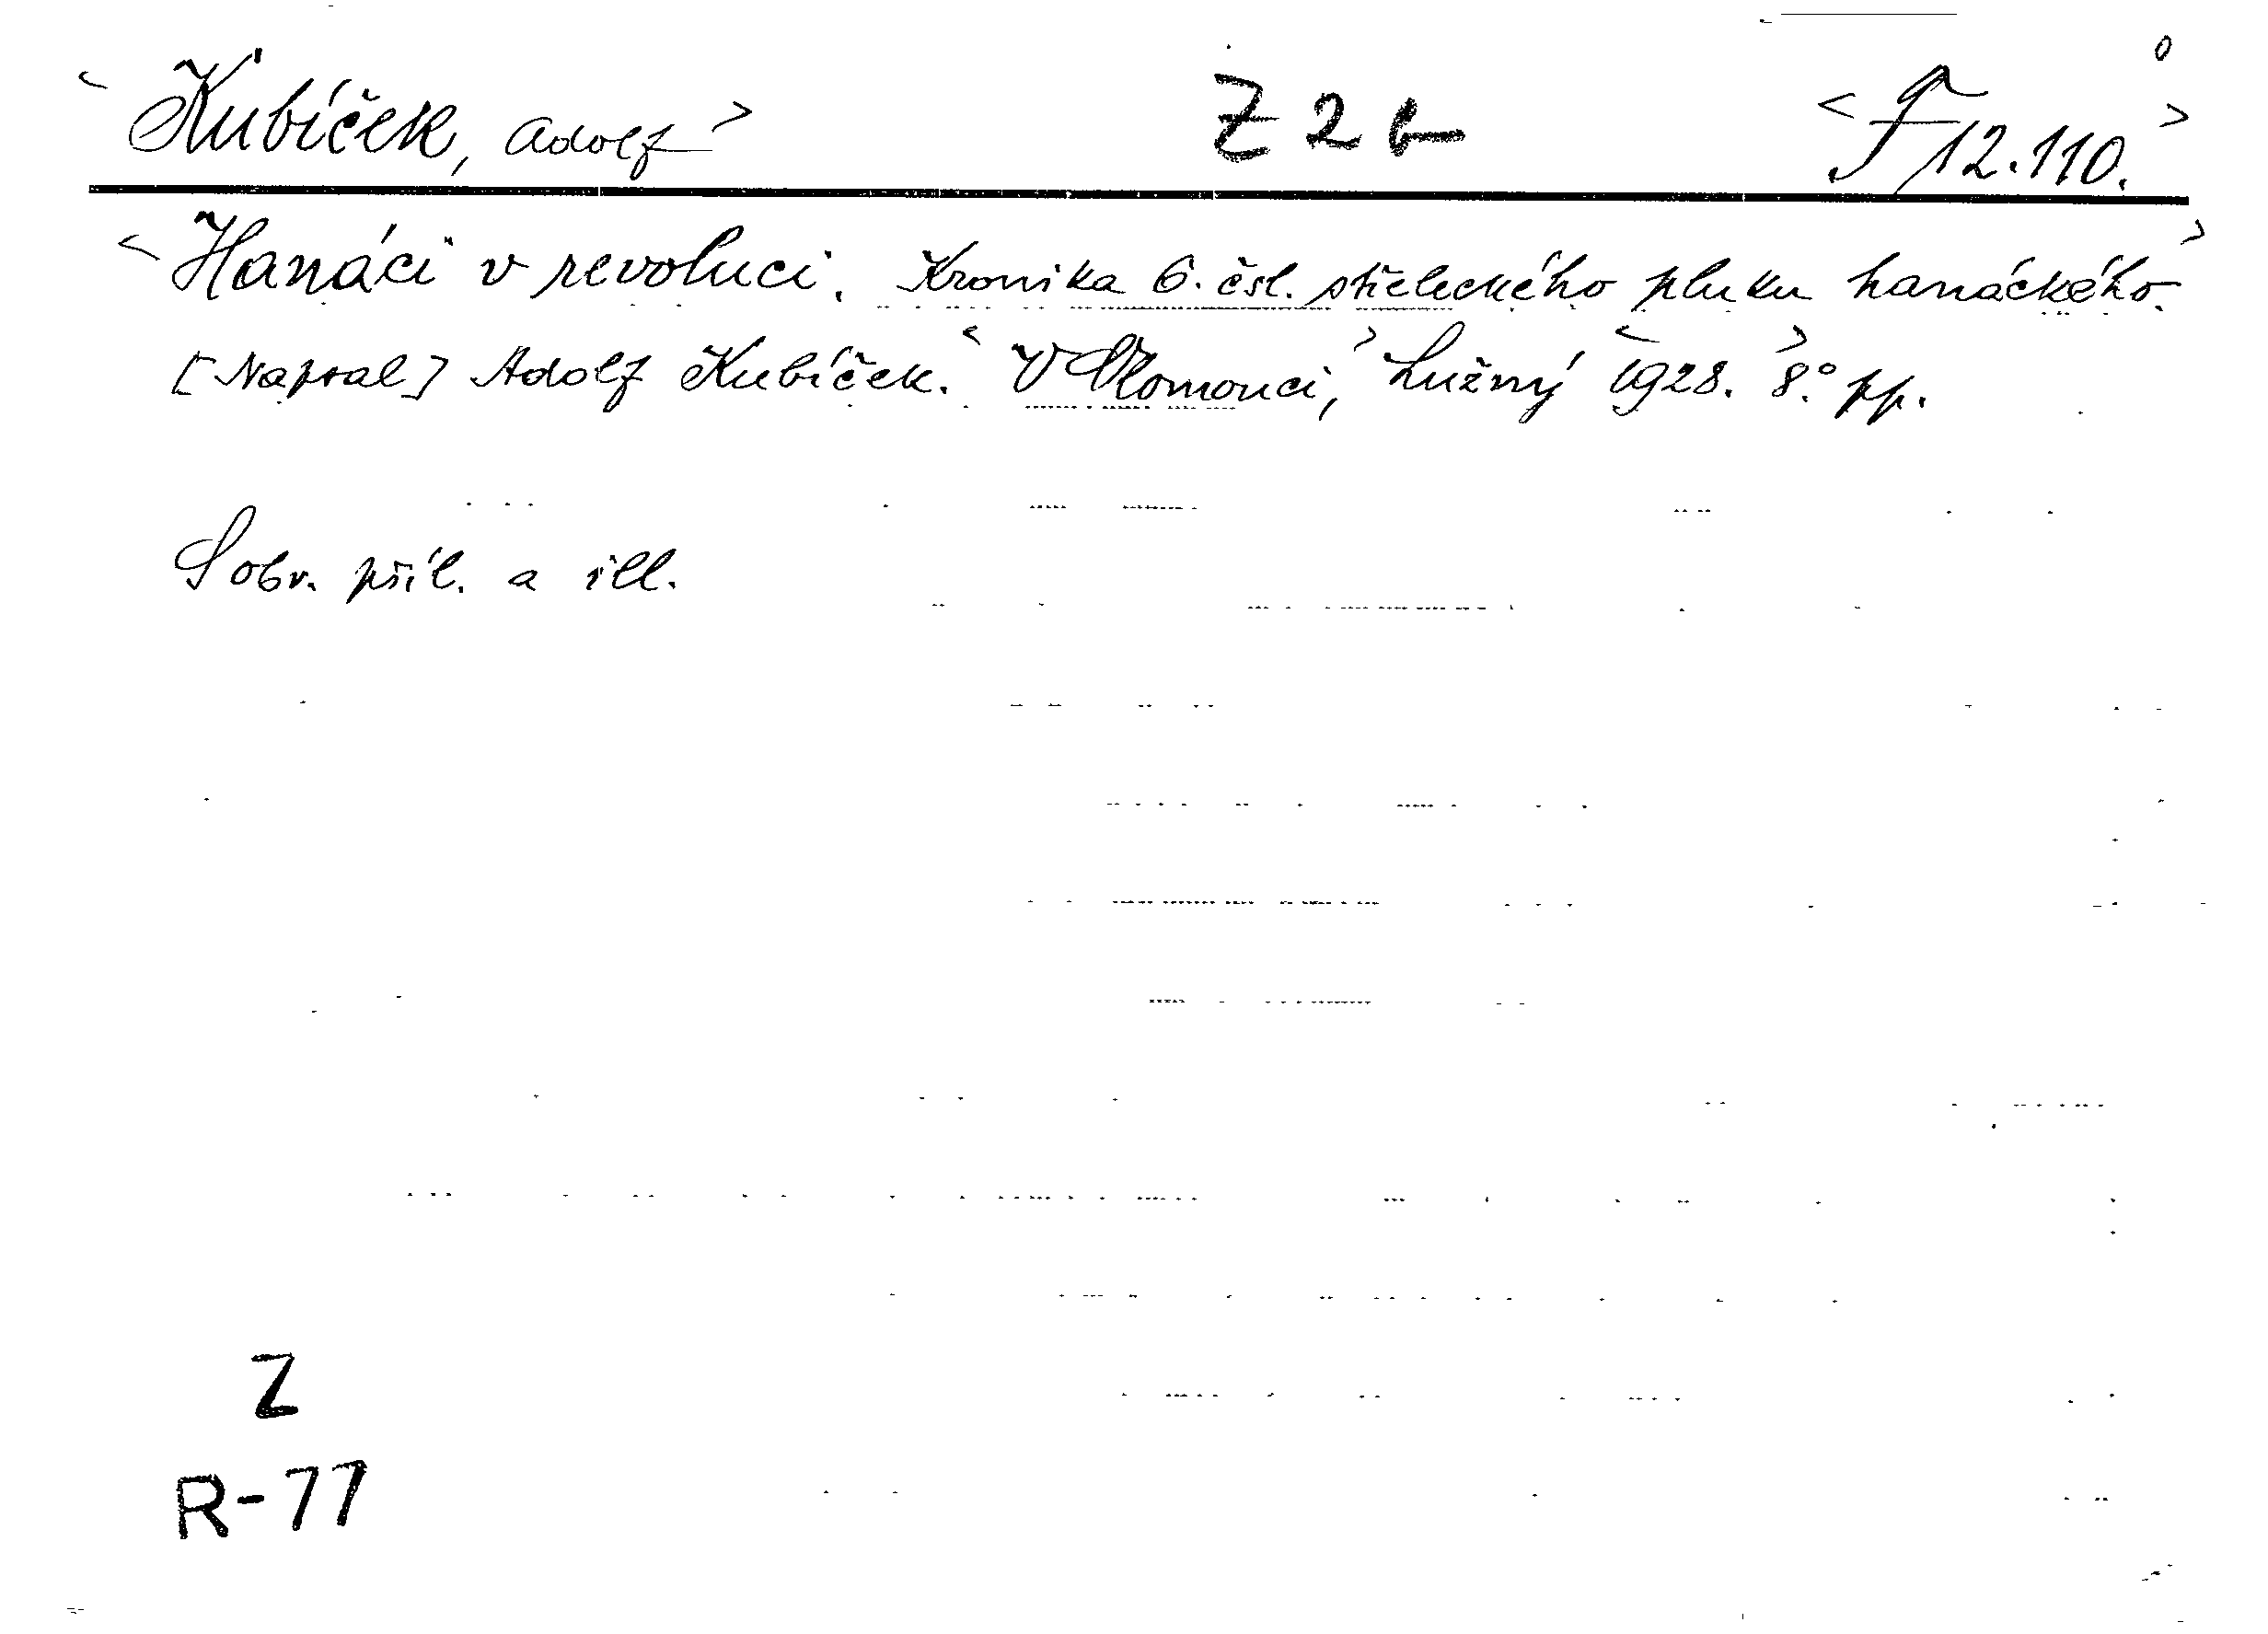 <Kubíček, Adolf> Z 2 b <F 12.110.>
<Hanáci v revoluci. Kronika 6. čsl. střeleckého pluku hanáckého.>
[Napsal] Adolf Kubíček. <V Olomouci,> Lužný <1928.> 8.° pp.
S obr. příl. a ill.
Z
R-77